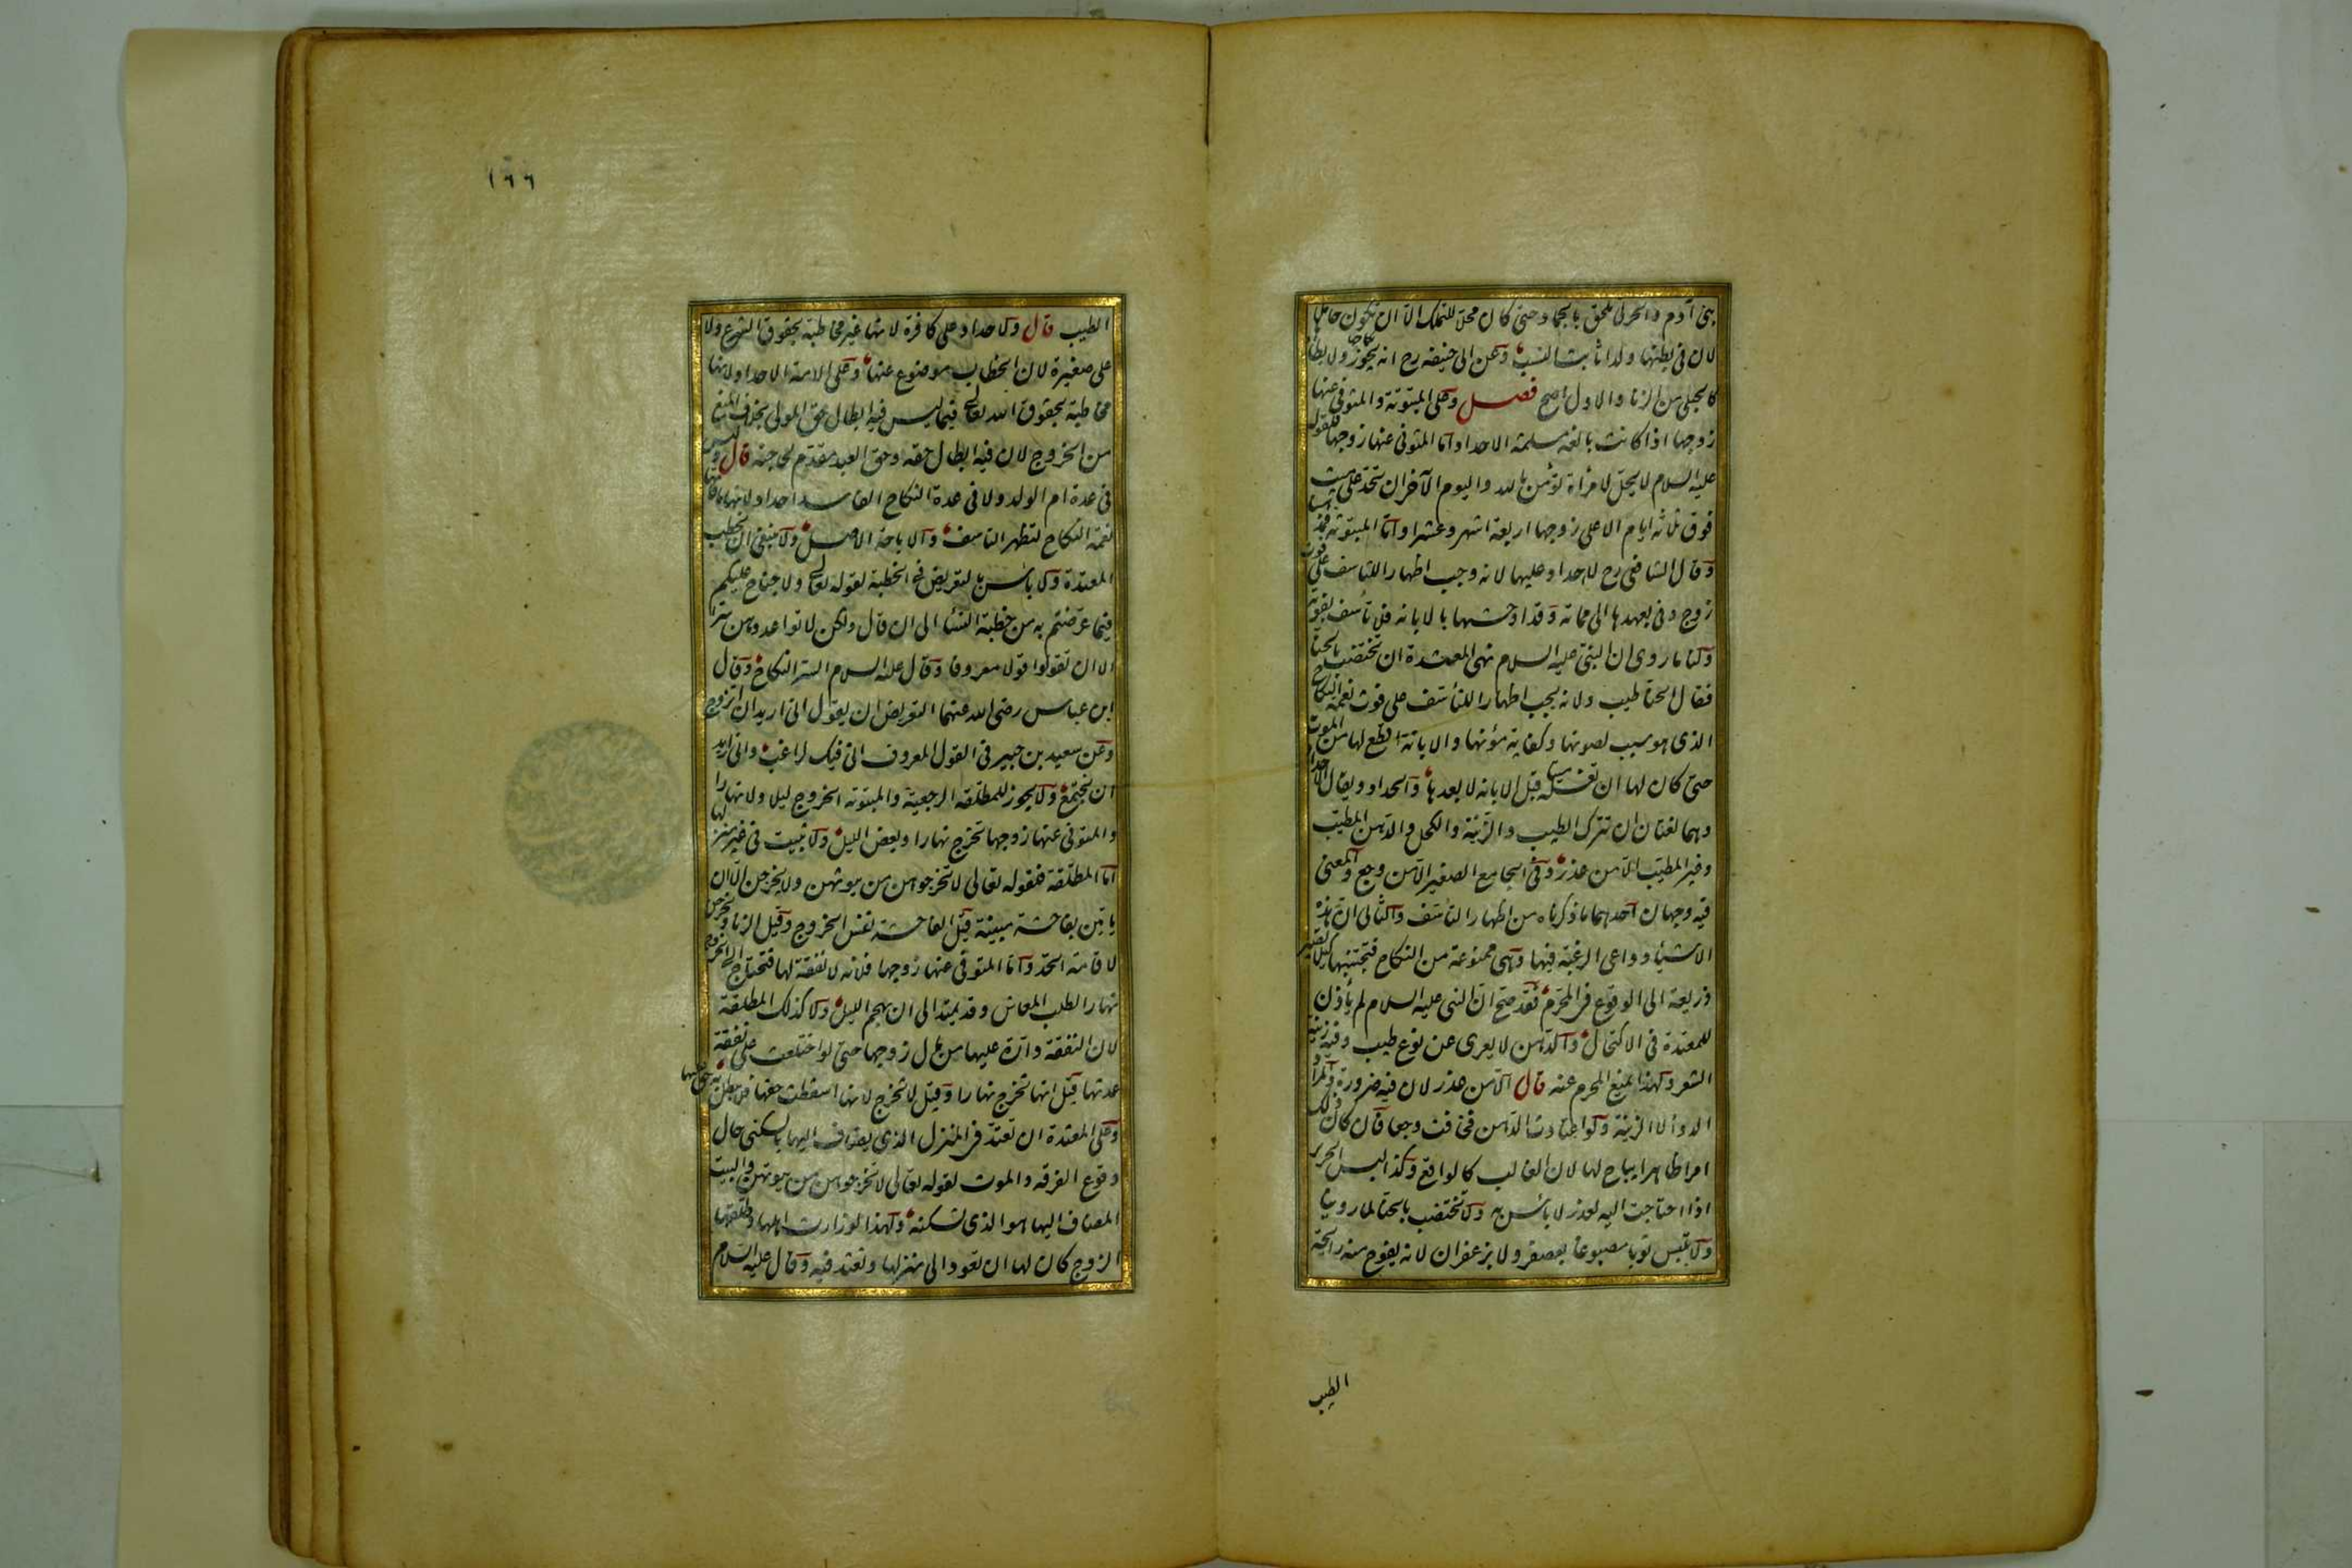 بنى آدم والحربى ملحق بالجماد حتى كان محلا للتملك الا ان تكون حاملا
لان فى بطنها ولدا ثابت النسب وعن ابى حنيفة رح انه يجوز نكاحها ولا يطأها
كالحبلى من الزنا والاول اصح فصل وعلى المبتوتة والمتوفى عنها
زوجها اذا كانت بالغة مسلمة الاحداد اما المتوفى عنها زوجها فلقوله
عليه السلام لا يحل لامرأة تؤمن بالله واليوم الآخر ان تحد على ميت
فوق ثلثة ايام الا على زوجها اربعة اشهر وعشرا واما المبتوتة فمذهبنا
وقال الشافعى رح لا حداد عليها لانه وجب اظهارا للتأسف على فوت
زوج وفى بعهدها الى مماته وقد اوحشها بالابانة فلا تأسف بفوته
ولنا ما روى ان النبى عليه السلام نهى المعتدة ان تختضب بالحناء
فقال الحنا طيب ولانه يجب اظهارا للتأسف على فوت نعمة النكاح
الذى هو سبب لصونها وكفاية مؤنها والابانة اقطع لها من الموت
حتى كان لها ان تغسله ميتا قبل الابانة لا بعدها والحداد ويقال الاحداد
وهما لغتان ان تترك الطيب والزينة والكحل والدهن المطيب
وغير المطيب الا من عذر وفى الجامع الصغير الا من وجع والمعنى
فيه وجهان احدهما ما ذكرناه من اظهار التأسف والثانى ان هذه
الاشياء دواعى الرغبة فيها وهى ممنوعة من النكاح فتجتنبها كيلا تصير
ذريعة الى الوقوع فى المحرم فقد صح ان النبى عليه السلام لم يأذن
للمعتدة فى الاكتحال والدهن لا يعرى عن نوع طيب وفيه زينة
الشعر ولهذا يمنع المحرم عنه قال الا من عذر لان فيه ضرورة والمراد
الدواء لا الزينة ولو اعتادت الدهن فخافت وجعا فان كان ذلك
امرا ظاهرا يباح لها لان الغالب كالواقع وكذا لبس الحرير
اذا احتاجت اليه لعذر لا بأس به ولا تختضب بالحنا لما روينا
ولا تلبس ثوبا مصبوغا بعصفر ولا بزعفران لانه يفوح منه رائحة
الطيب
١٦٦
الطيب قال ولا حداد على كافرة لانها غير مخاطبة بحقوق الشرع ولا
على صغيرة لان الخطاب موضوع عنها وعلى الامة الاحداد لانها
مخاطبة بحقوق الله تعالى فيما ليس فيه ابطال حق المولى بخلاف المنع
من الخروج لان فيه ابطال حقه وحق العبد مقدم لحاجته قال وليس
فى عدة ام الولد ولا فى عدة النكاح الفاسد احداد لانهما ما فاتها
نعمة النكاح لتظهر التاسف والاباحة الاصل ولا ينبغى ان تخطب
المعتدة ولا بأس بالتعريض فى الخطبة لقوله تعالى ولا جناح عليكم
فيما عرضتم به من خطبة النساء الى ان قال ولكن لا تواعدوهن سرا
الا ان تقولوا قولا معروفا وقال عليه السلام السر النكاح وقال
ابن عباس رضى الله عنهما التعريض ان يقول انى اريد ان اتزوج
وعن سعيد بن جبير فى القول المعروف انى فيك لراغب وانى اريد
ان نجتمع ولا يجوز للمطلقة الرجعية والمبتوتة الخروج ليلا ولا نهارا
والمتوفى عنها زوجها تخرج نهارا وبعض الليل ولا تبيت فى غير منزلها
اما المطلقة فلقوله تعالى لا تخرجوهن من بيوتهن ولا يخرجن الا ان
يأتين بفاحشة مبينة قيل الفاحشة نفس الخروج وقيل الزنا ويخرجن
لاقامة الحد واما المتوفى عنها زوجها فلانه لا نفقة لها فتحتاج الى الخروج
نهارا لطلب المعاش وقد يمتد الى ان يهجم الليل ولا كذلك المطلقة
لان النفقة دارة عليها من مال زوجها حتى لو اختلعت على نفقة
عدتها قيل انها تخرج نهارا وقيل لا تخرج لانها اسقطت حقها فلا يبطل به حق عليها
وعلى المعتدة ان تعتد فى المنزل الذى يضاف اليها بالسكنى حال
وقوع الفرقة والموت لقوله تعالى لا تخرجوهن من بيوتهن والبيت
المضاف اليها هو الذى تسكنه ولهذا لو زارت اهلها وطلقها
الزوج كان لها ان تعود الى منزلها وتعتد فيه وقال عليه السلام